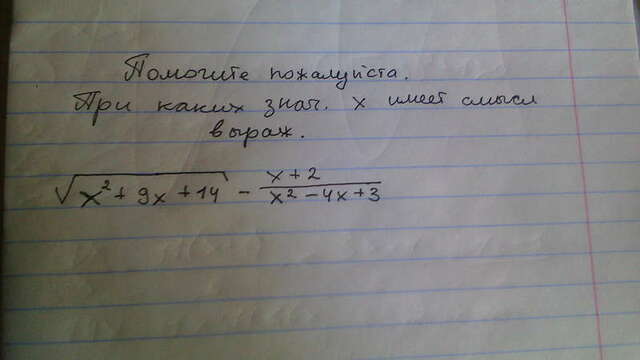 Помогите пожалуйста.
При каких знач. х имеет смысл
выраж.
√x² + 9x + 14 - (x + 2)/(x² - 4x + 3)